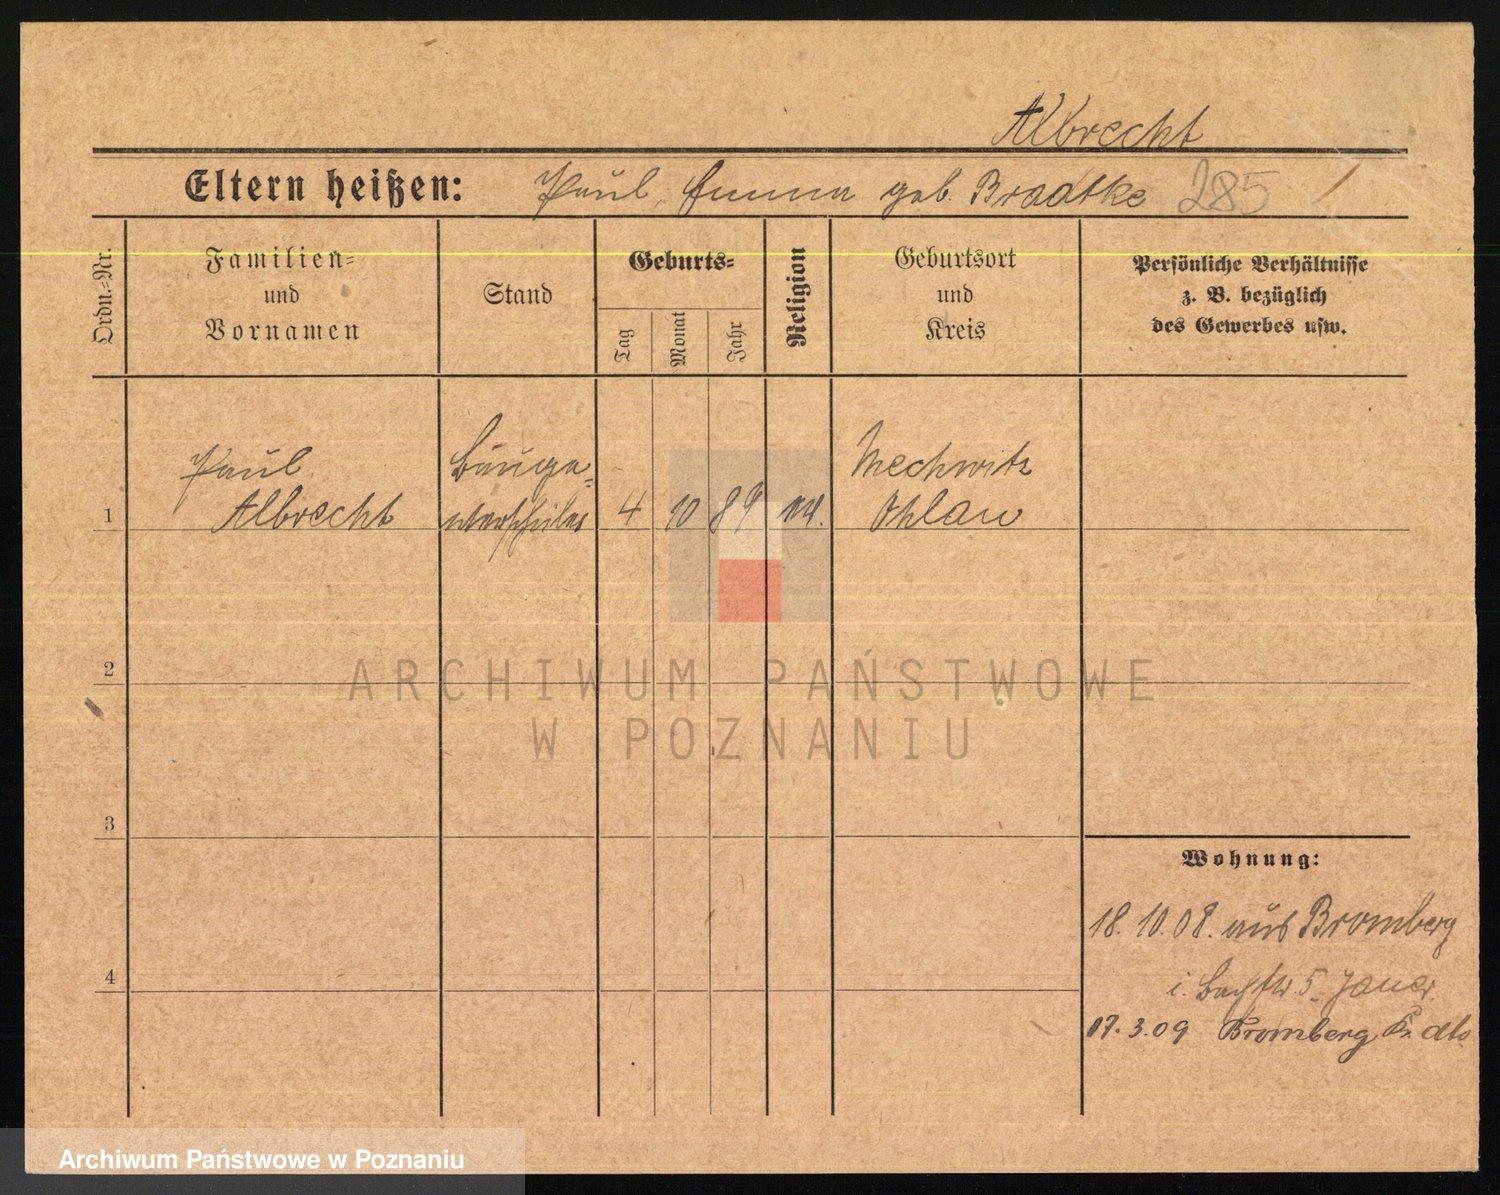 Albrecht
Eltern heißen: Paul, Emma geb. Bradtke 285
Ordn.-Nr.
Familien-
und
Vornamen
Stand
Geburts-
Tag
Monat
Jahr
Religion
Geburtsort
und
Kreis
Persönliche Verhältnisse
z. B. bezüglich
des Gewerbes usw.
Paul
Albrecht
Bauge-
werkschüler
4 10 89
Mechwitz
Ohlau
1
2
3
4
ARCHIWUM PAŃSTWOWE
W POZNANIU
Wohnung:
18. 10. 08. aus Bromberg
i. 5. Jauer
17. 3. 09 Bromberg dto.
Archiwum Państwowe w Poznaniu